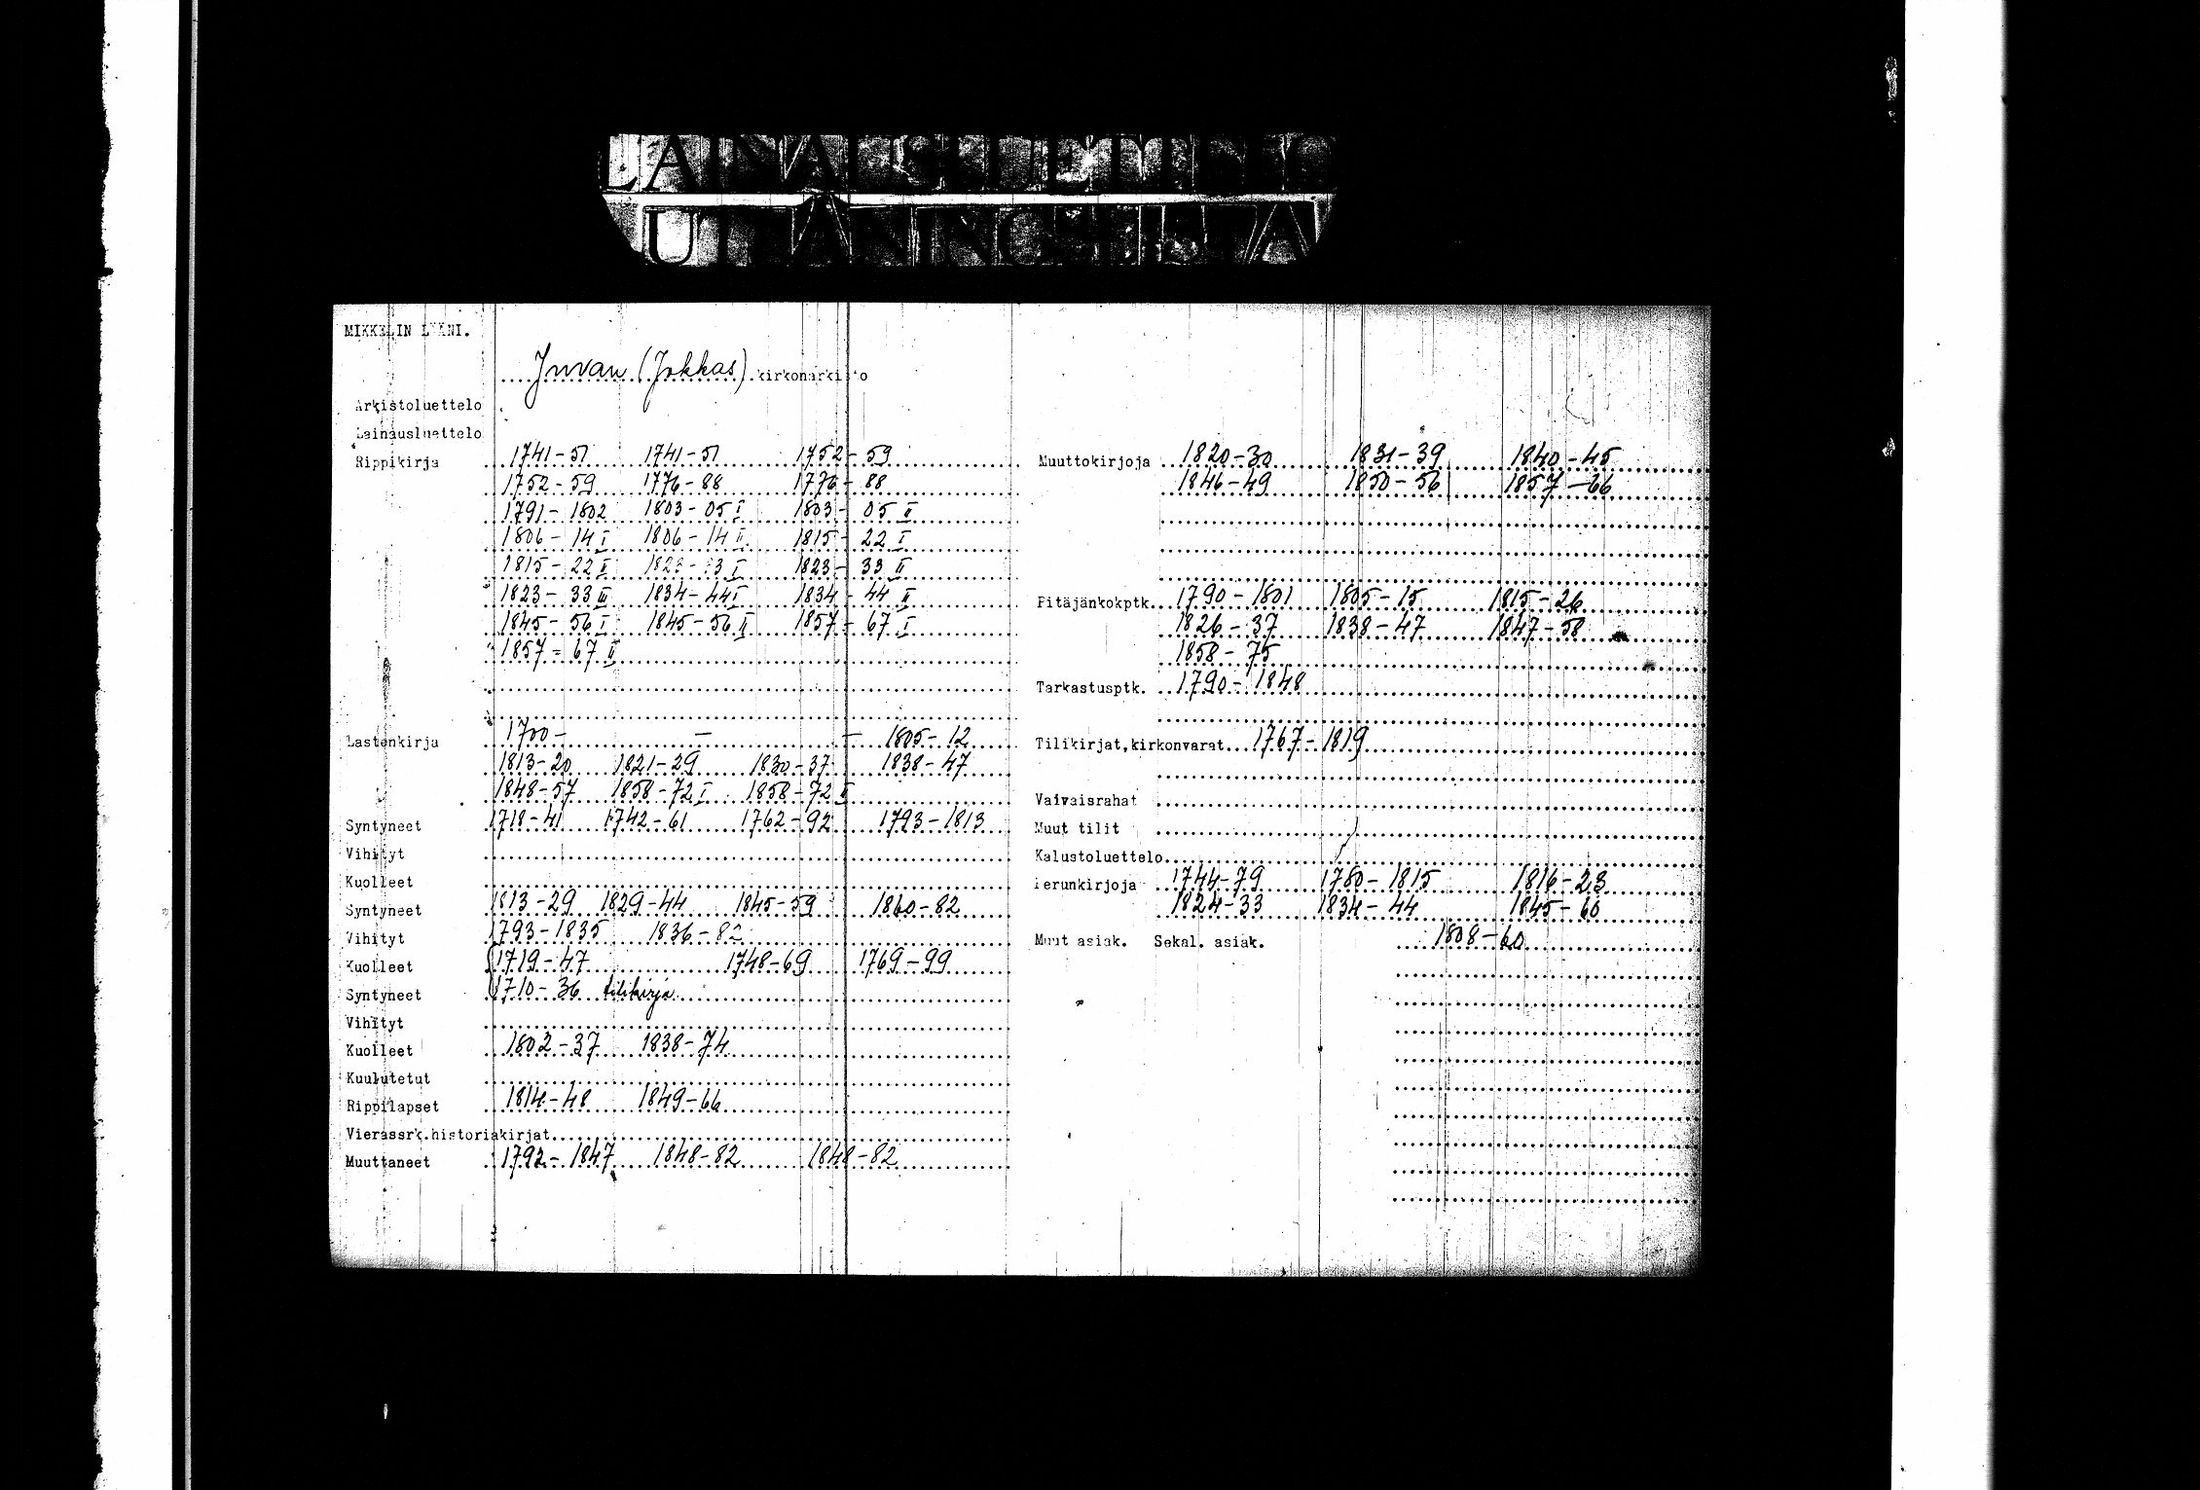 MIKKELIN LÄÄNI.
Juvan (Jokkas) kirkonarkisto
Arkistoluettelo
Lainausluettelo
Rippikirja 1741-51 1741-51 1752-59
1752-59 1776-88 1776-88
1791-1802 1803-05 I 1803-05 II
1806-14 I 1806-14 II 1815-22 I
1815-22 II 1823-33 I 1823-33 II
1823-33 III 1834-44 I 1834-44 II
1845-56 I 1845-56 II 1857-67 I
1857-67 II
Lastenkirja 1700- - - 1805-12
1813-20 1821-29 1830-37 1838-47
1848-57 1858-72 I 1858-72 II
Syntyneet 1718-41 1742-61 1762-92 1793-1813
Vihityt
Kuolleet
Syntyneet 1813-29 1829-44 1845-59 1860-82
Vihityt 1793-1835 1836-82
Kuolleet 1719-47 1748-69 1769-99
Syntyneet 1710-36 tilikirja
Vihityt
Kuolleet 1802-37 1838-74
Kuulutetut
Rippilapset 1814-48 1849-66
Vierassrk.historiakirjat
Muuttaneet 1792-1847 1848-82 1848-82
Muuttokirjoja 1820-30 1831-39 1840-45
1846-49 1850-56 1857-66
Pitäjänkokptk. 1790-1801 1805-15 1815-26
1826-37 1838-47 1847-58
1858-75
Tarkastusptk. 1790-1848
Tilikirjat,kirkonvarat 1767-1819
Vaivaisrahat
Muut tilit
Kalustoluettelo
Perunkirjoja 1744-79 1780-1815 1816-23
1824-33 1834-44 1845-60
Muut asiak. Sekal. asiak. 1808-60